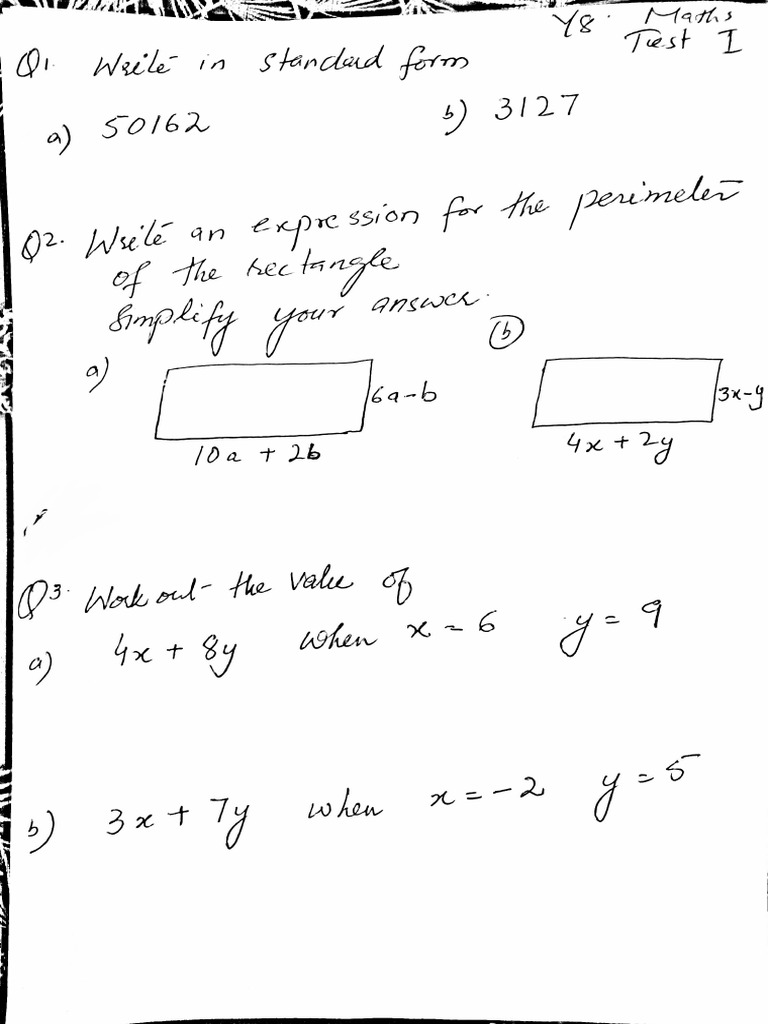 Y8. Maths
Test I
Q1. Write in standard form
a) 50162 b) 3127
Q2. Write an expression for the perimeter
of the rectangle
Simplify your answer.
a) b
6a-b 3x-y
10a + 2b 4x + 2y
Q3. Work out the value of
a) 4x + 8y when x = 6 y = 9
b) 3x + 7y when x = -2 y = 5